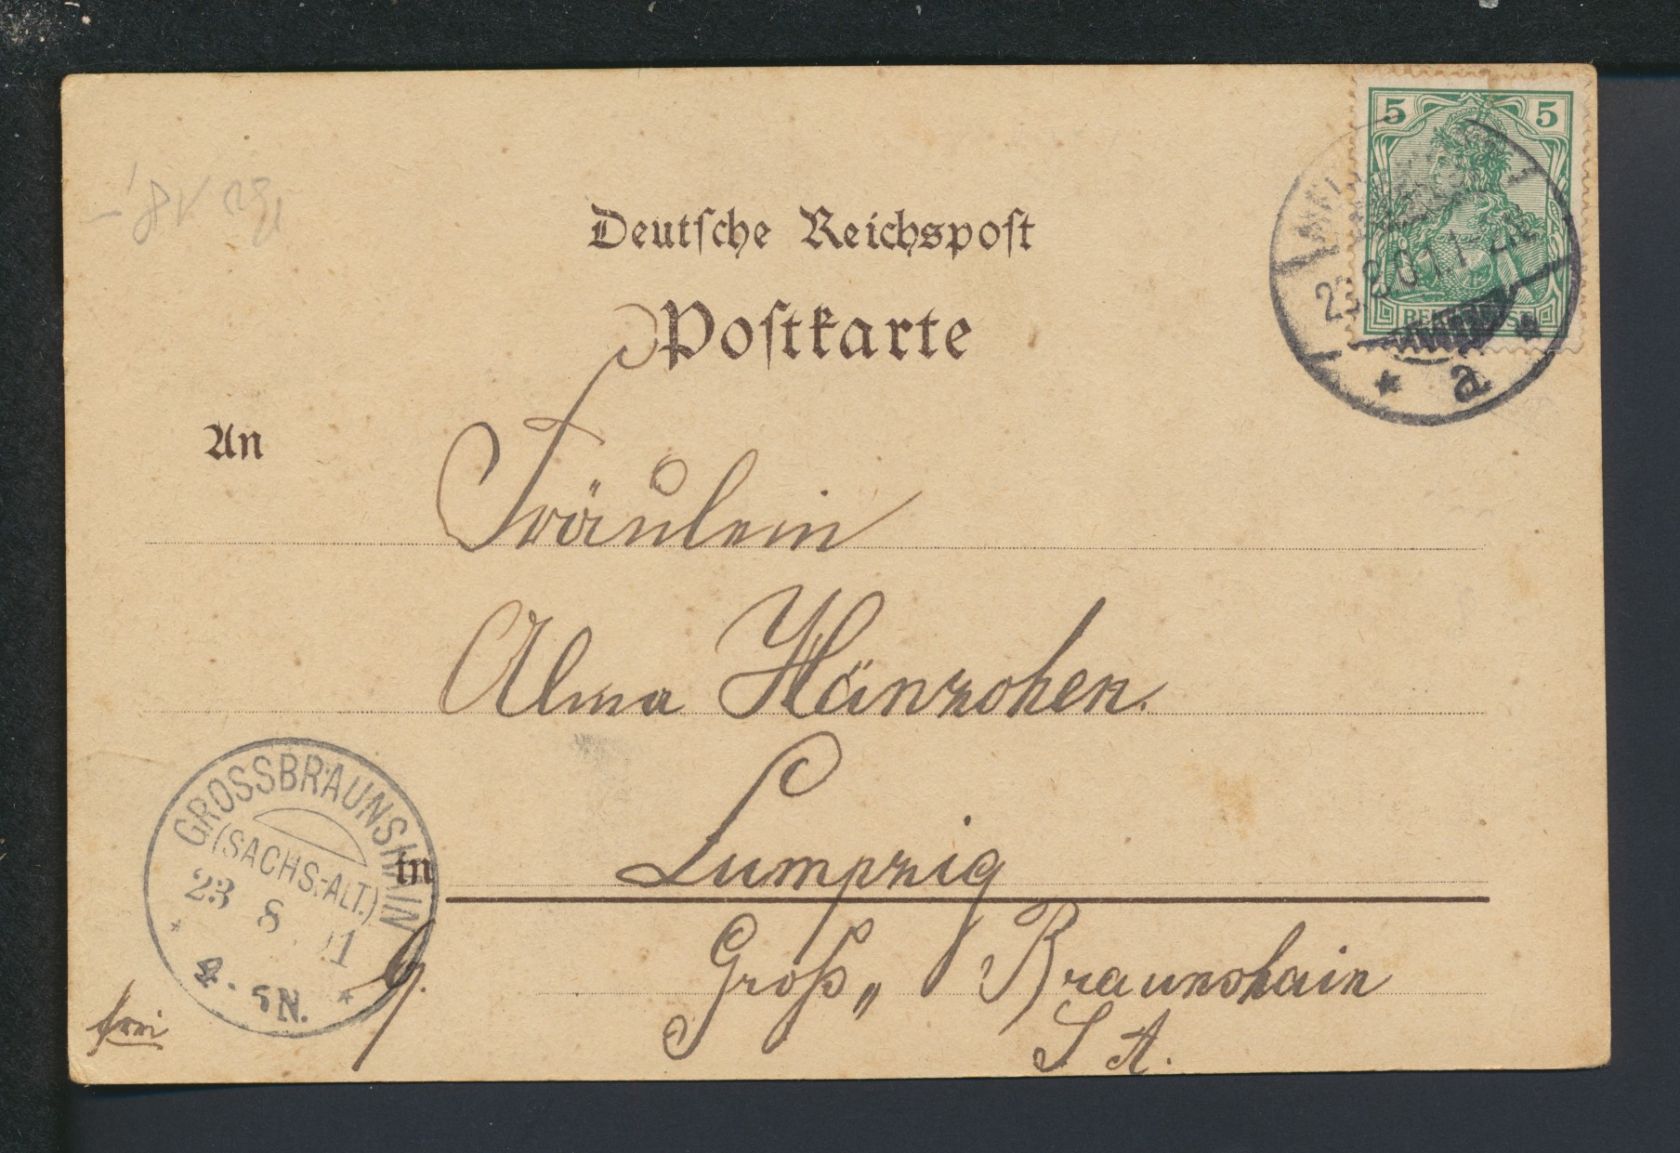 5 5
23.8.01.1-2N
a
Deutsche Reichspost
Postkarte
An
Fräulein
Alma
Lumpzig
in
Groß„ Braunshain
S A.
GROSSBRAUNSHAIN
(SACHS.-ALT.)
23 8 01
4-5N.
frei